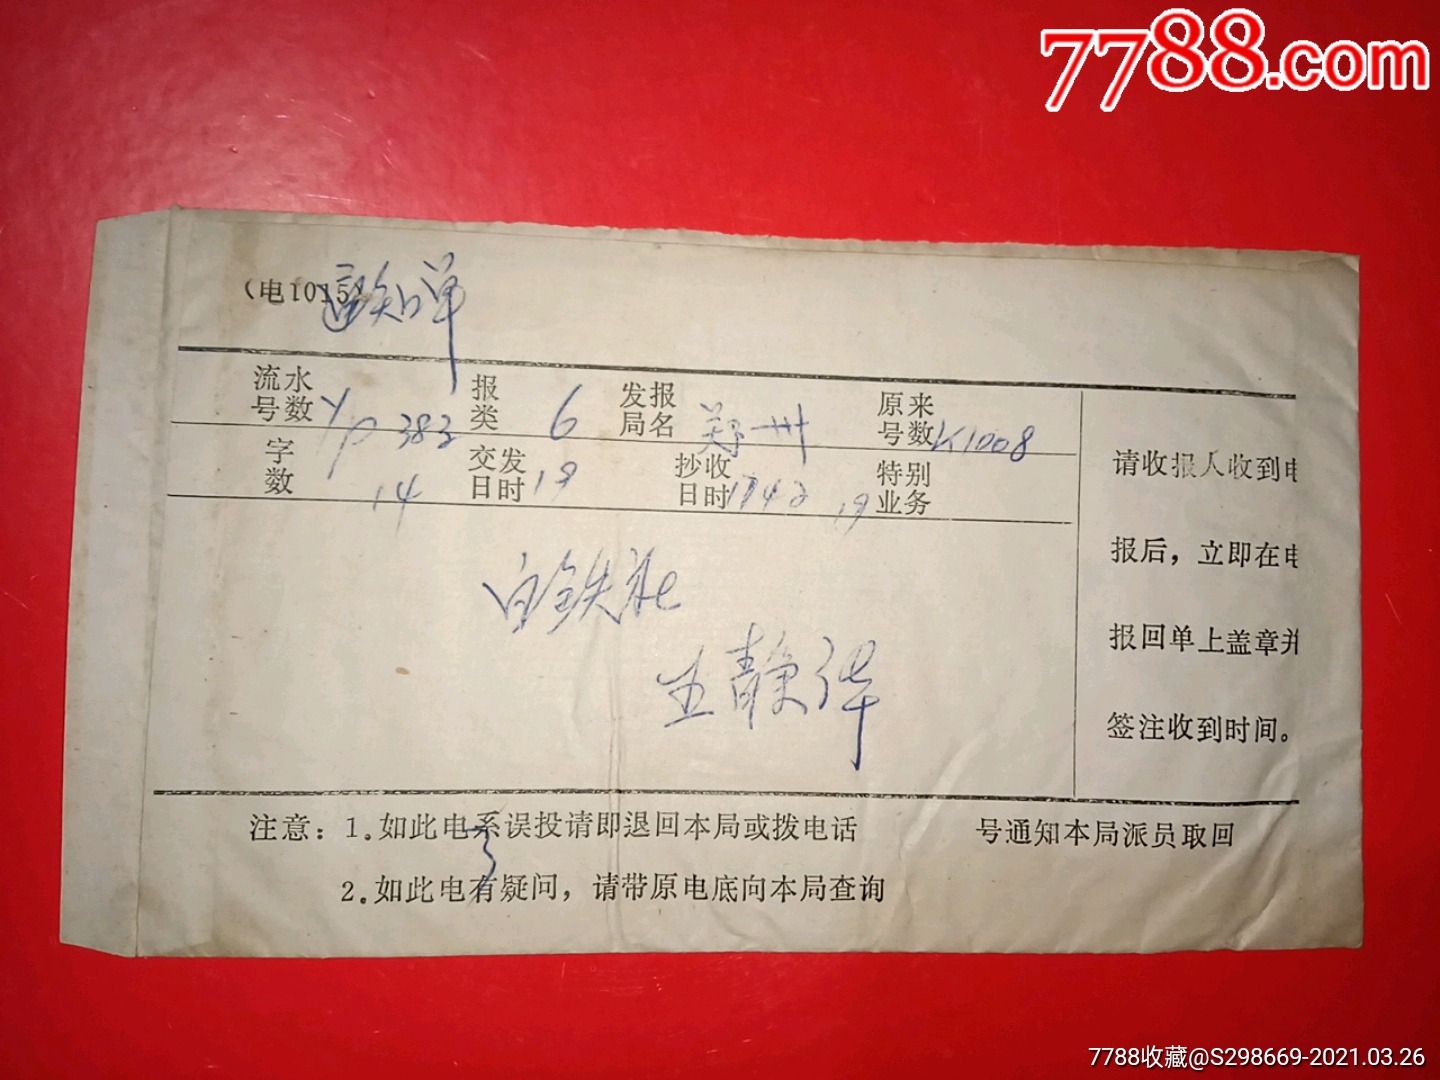 7788.com
(电1015)
通知单
流水号数 YP 383 报类 6 发报局名 郑州 原来号数 K1008
字数 14 交发日时 19 抄收日时 1742 19 特别业务
请收报人收到电
报后，立即在电
报回单上盖章并
签注收到时间。
白铁社
王静华
注意：1.如此电系误投请即退回本局或拨电话 号通知本局派员取回
2.如此电有疑问，请带原电底向本局查询
7788收藏@S298669-2021.03.26